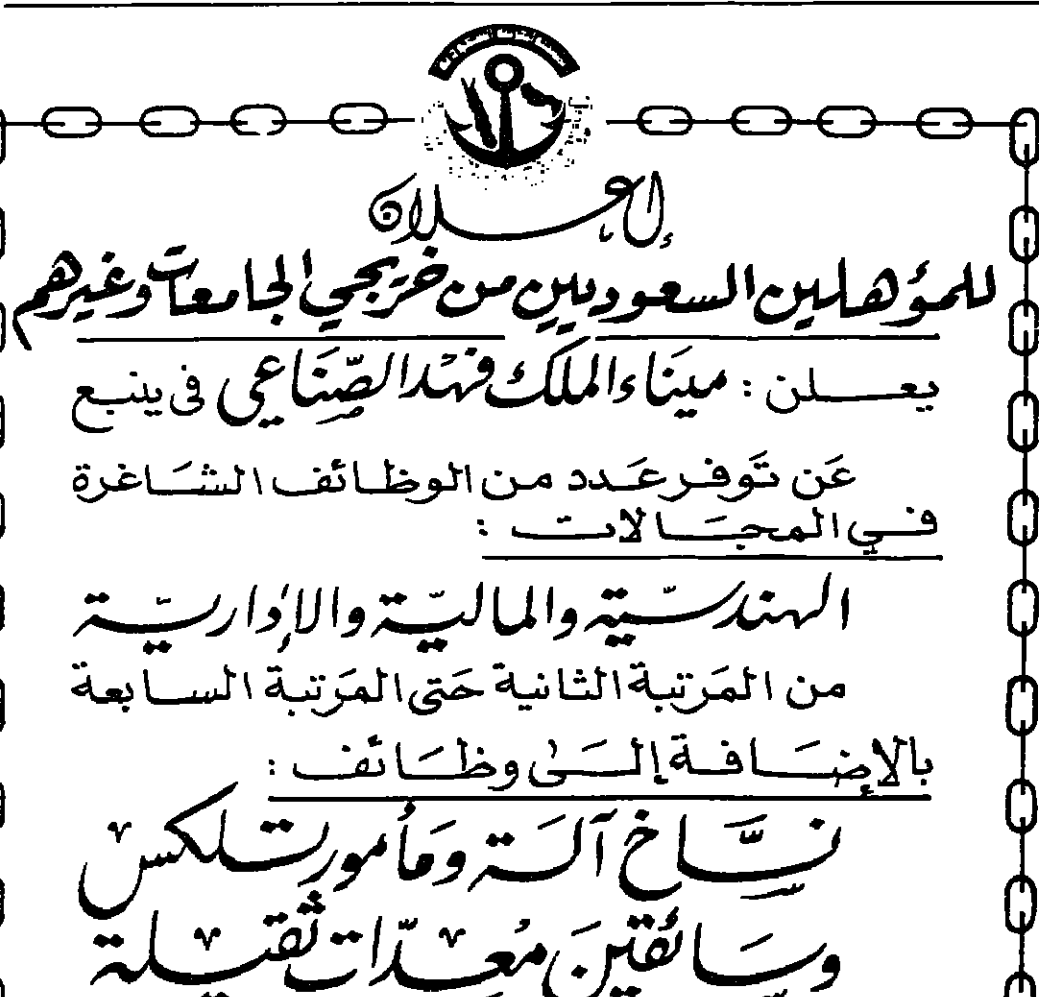 إعلان
للمؤهلين السعوديين من خريجي الجامعات وغيرهم
يعلن : ميناء الملك فهد الصناعي في ينبع
عن توفر عدد من الوظائف الشاغرة
في المجالات :
الهندسية والمالية والإدارية
من المرتبة الثانية حتى المرتبة السابعة
بالإضافة إلى وظائف :
نساخ آلة ومأمور تلكس
وسائقين معدات ثقيلة